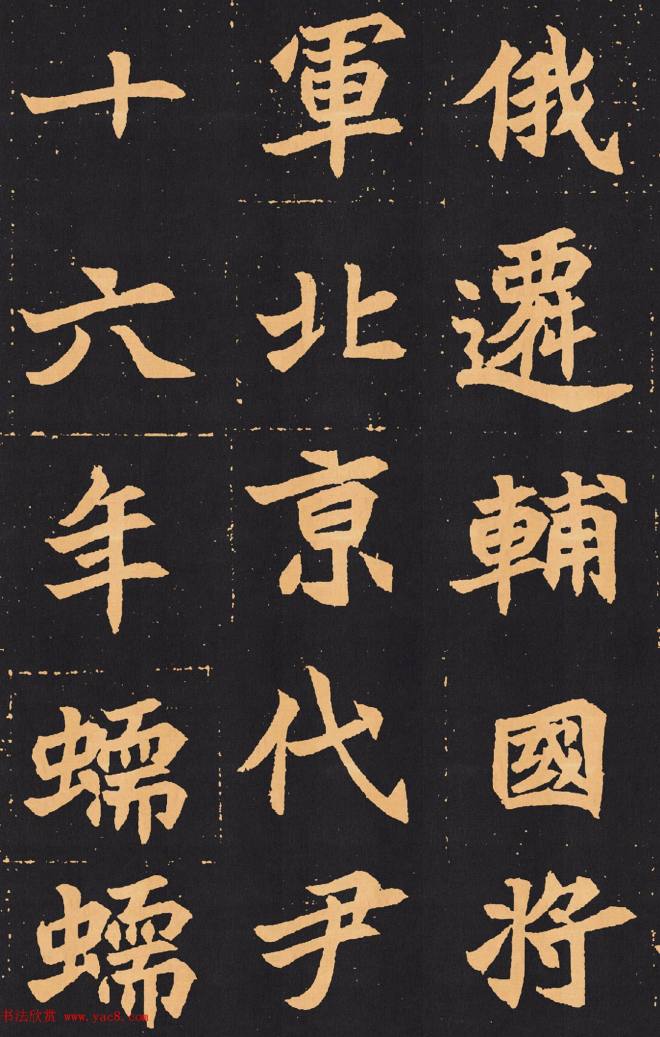 俄遷輔國將
軍北京代尹
十六年蠕蠕
书法欣赏 www.yac8.com